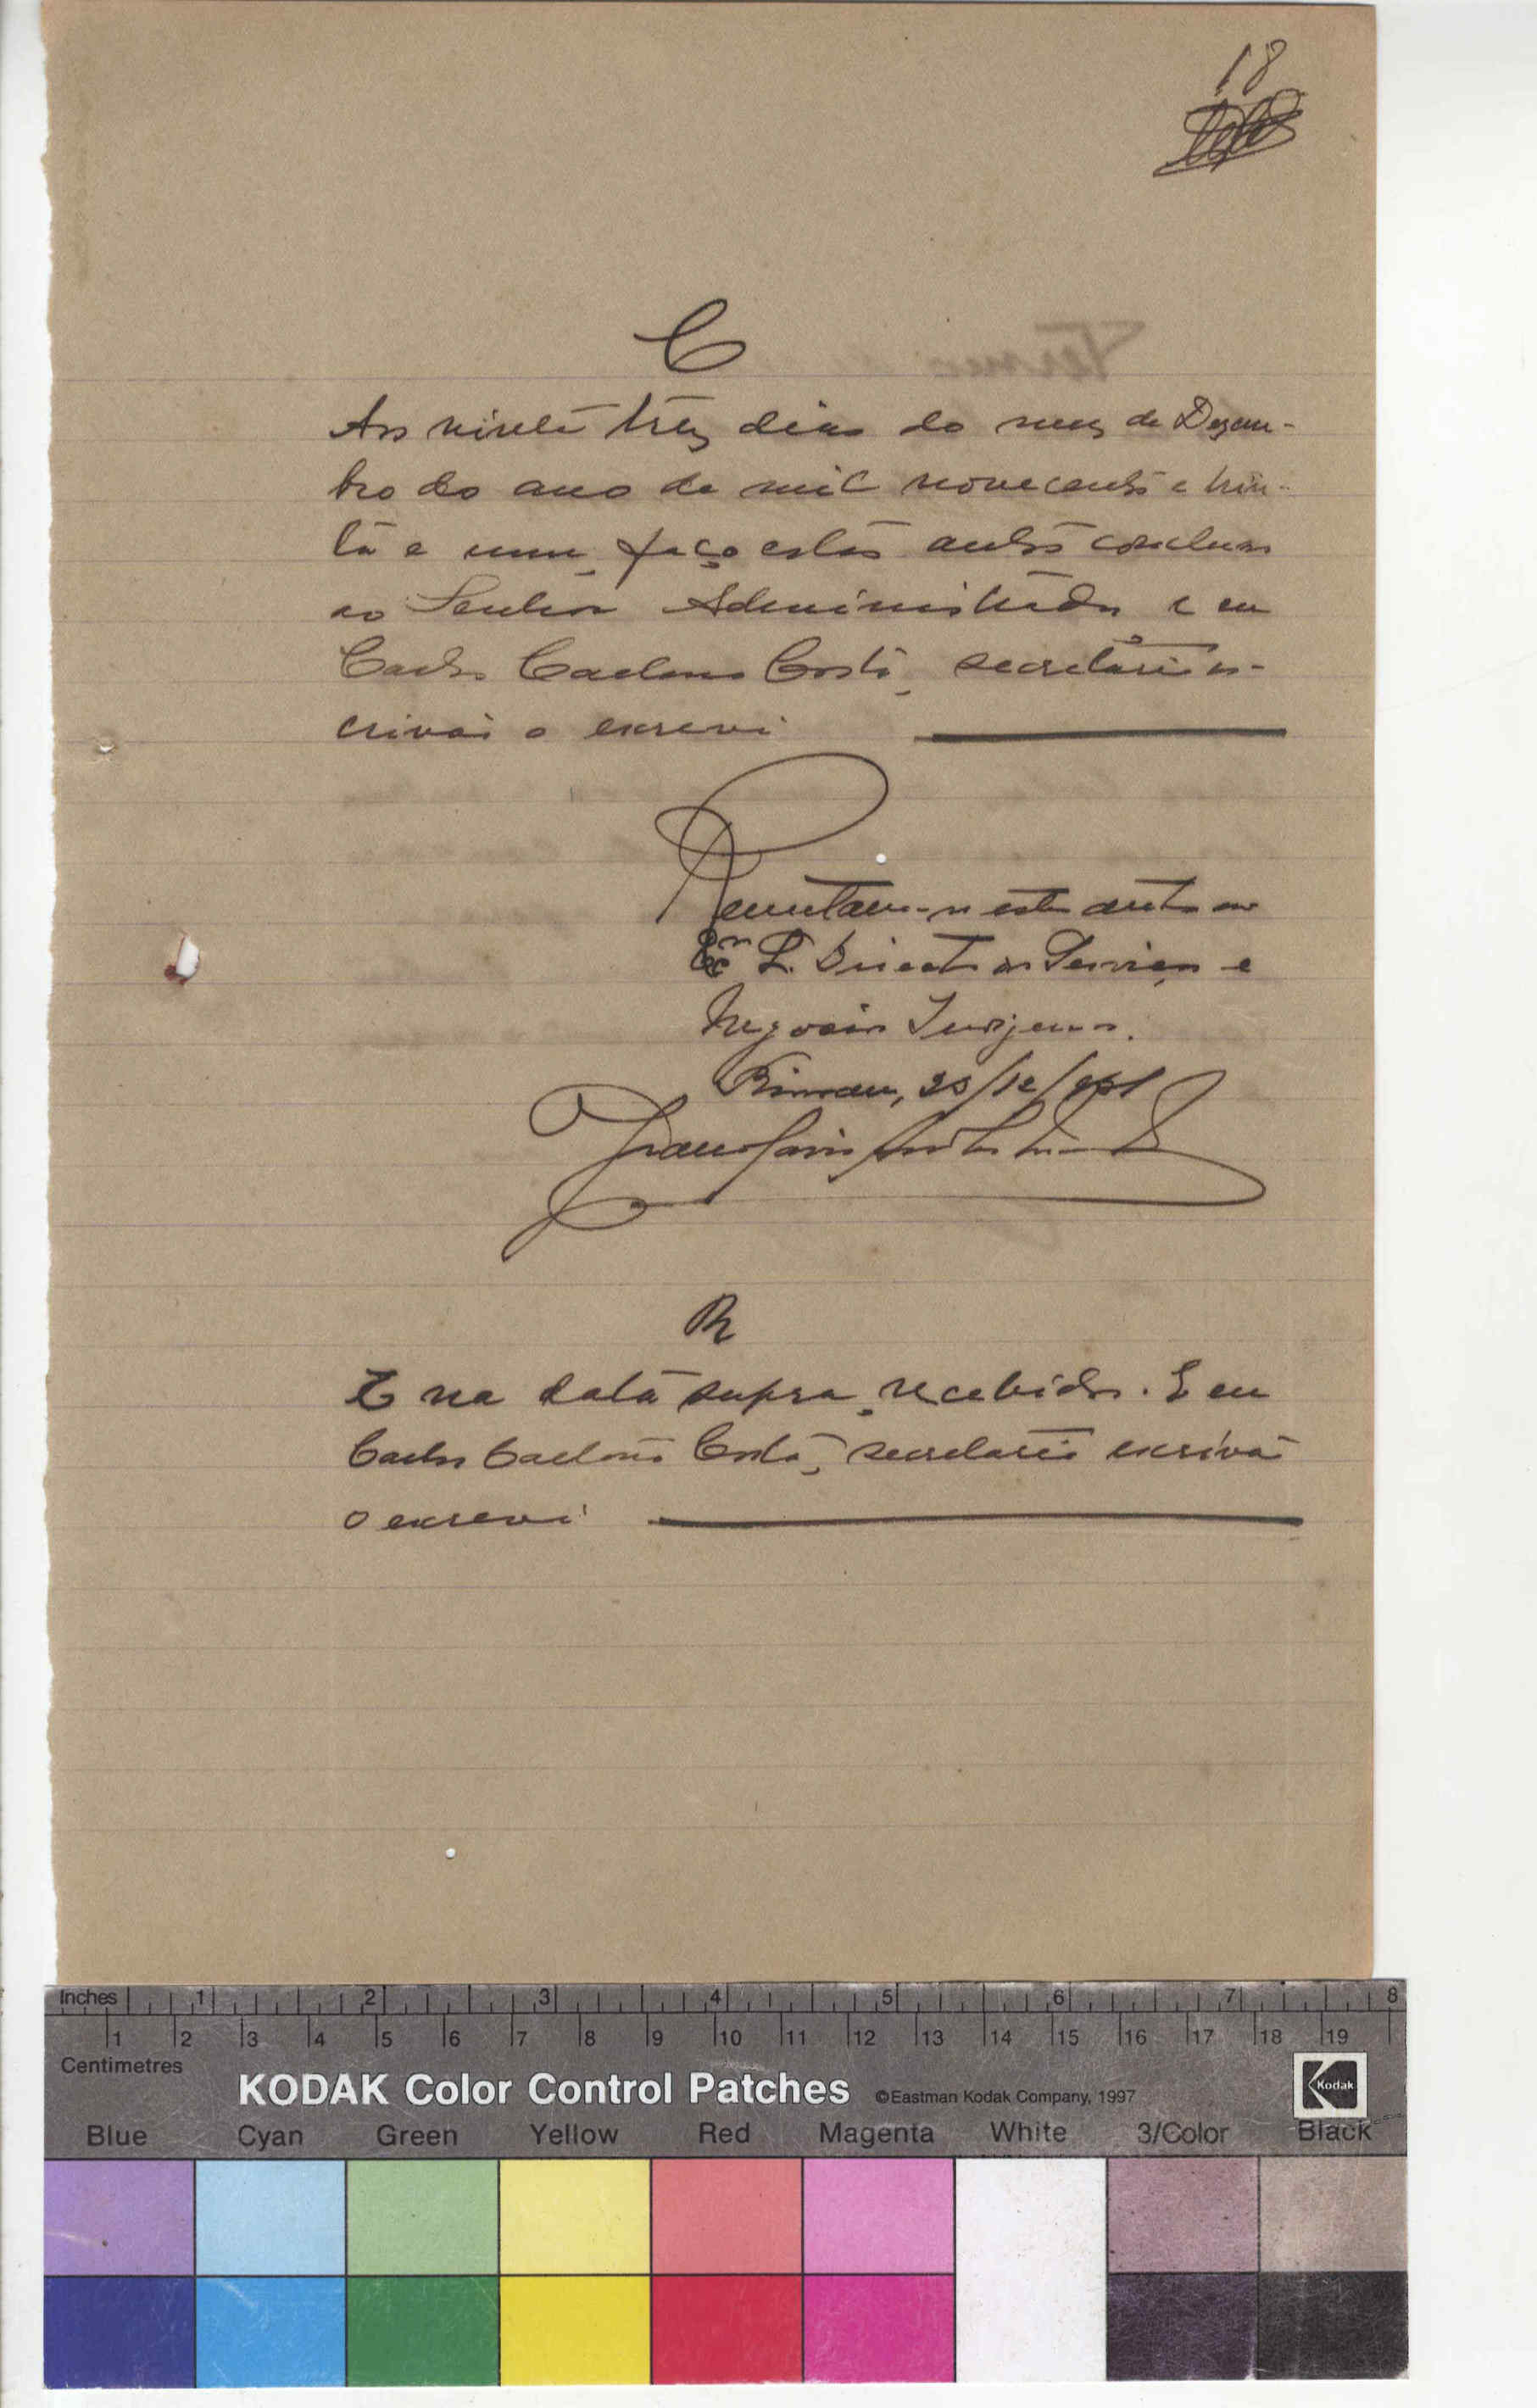 18
C
Aos vinte três dias do mez de Dezem-
bro do ano de mil novecentos e trin-
ta e um, faço estes autos conclusos
ao Senhor Administrador e eu
Carlos Caetano Costa, secretário es-
crivão o escrevi
Remetam-se estes autos ao
Exmo Sr. Director dos Serviços e
Negocios Indigenas.
Bissau, 23/12/931
R
E na data supra, recebidos. E eu
Carlos Caetano Costa, secretario escrivão
o escrevi
Inches 1 2 3 4 5 6 7 8
1 2 3 4 5 6 7 8 9 10 11 12 13 14 15 16 17 18 19
Centimetres
KODAK Color Control Patches ©Eastman Kodak Company, 1997 Kodak
Blue Cyan Green Yellow Red Magenta White 3/Color Black